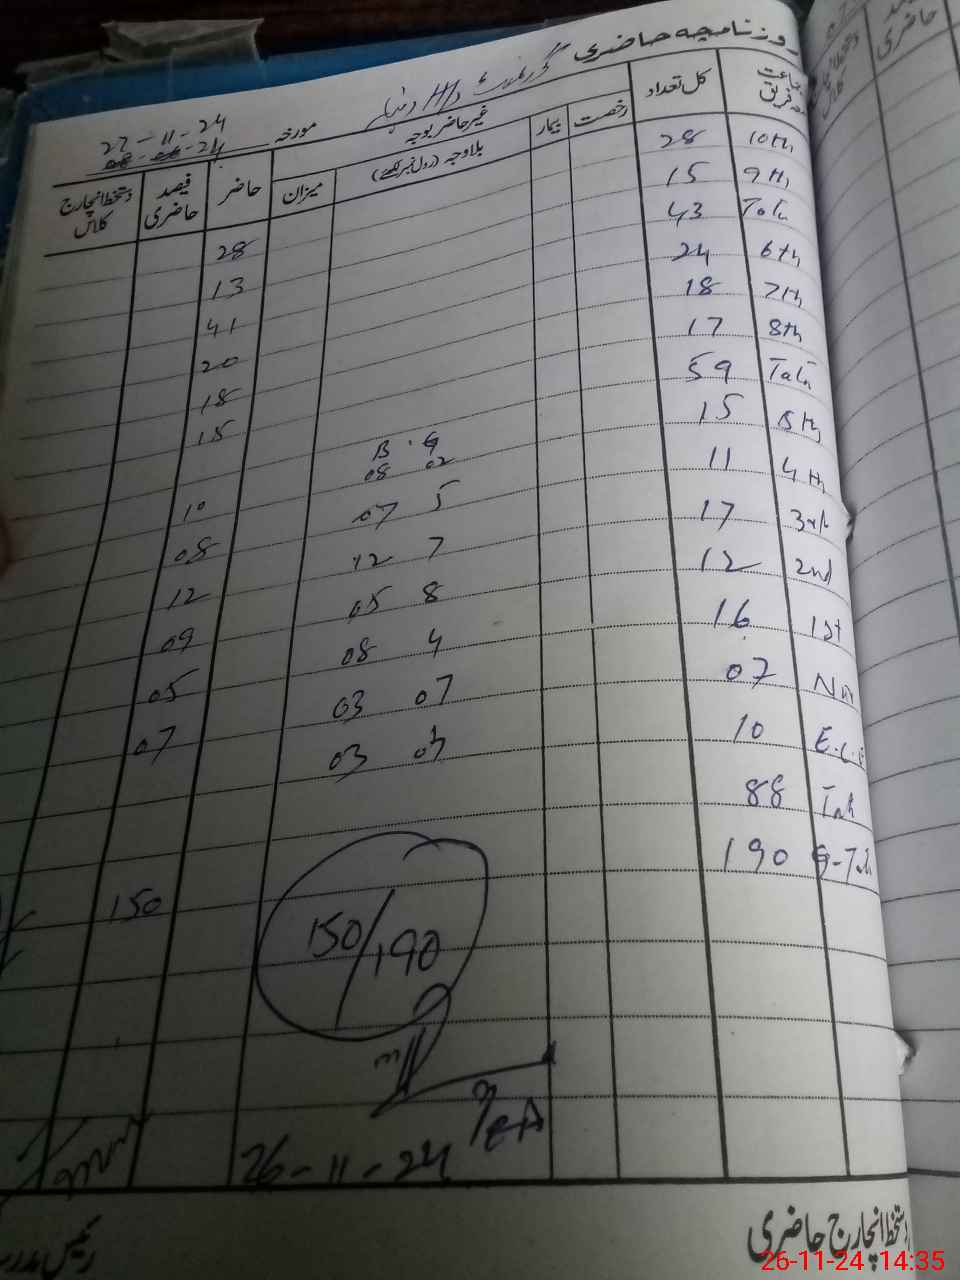 روزنامچہ حاضری گورنمنٹ
22-11-24 مورخہ
جماعت معہ فریق کل تعداد غیر حاضر بوجہ حاضر فیصد حاضری دستخط انچارج کلاس
رخصت بیمار بلاوجہ (رول نمبر لکھئے) میزان
10th 28 28
9th 15 13
43 41
6th 24 20
7th 18 18
8th 17 15
59
B G
5th 15 02 08 10
4th 11 5 07 08
3rd 17 7 12 12
2nd 12 8 05 09
1st 16 4 08 05
Nur 07 07 03 07
E.C.E 10 03
88
G-Total 190 150
150/190
26-11-24
دستخط انچارج حاضری
رئیس مدرسہ
26-11-24 14:35